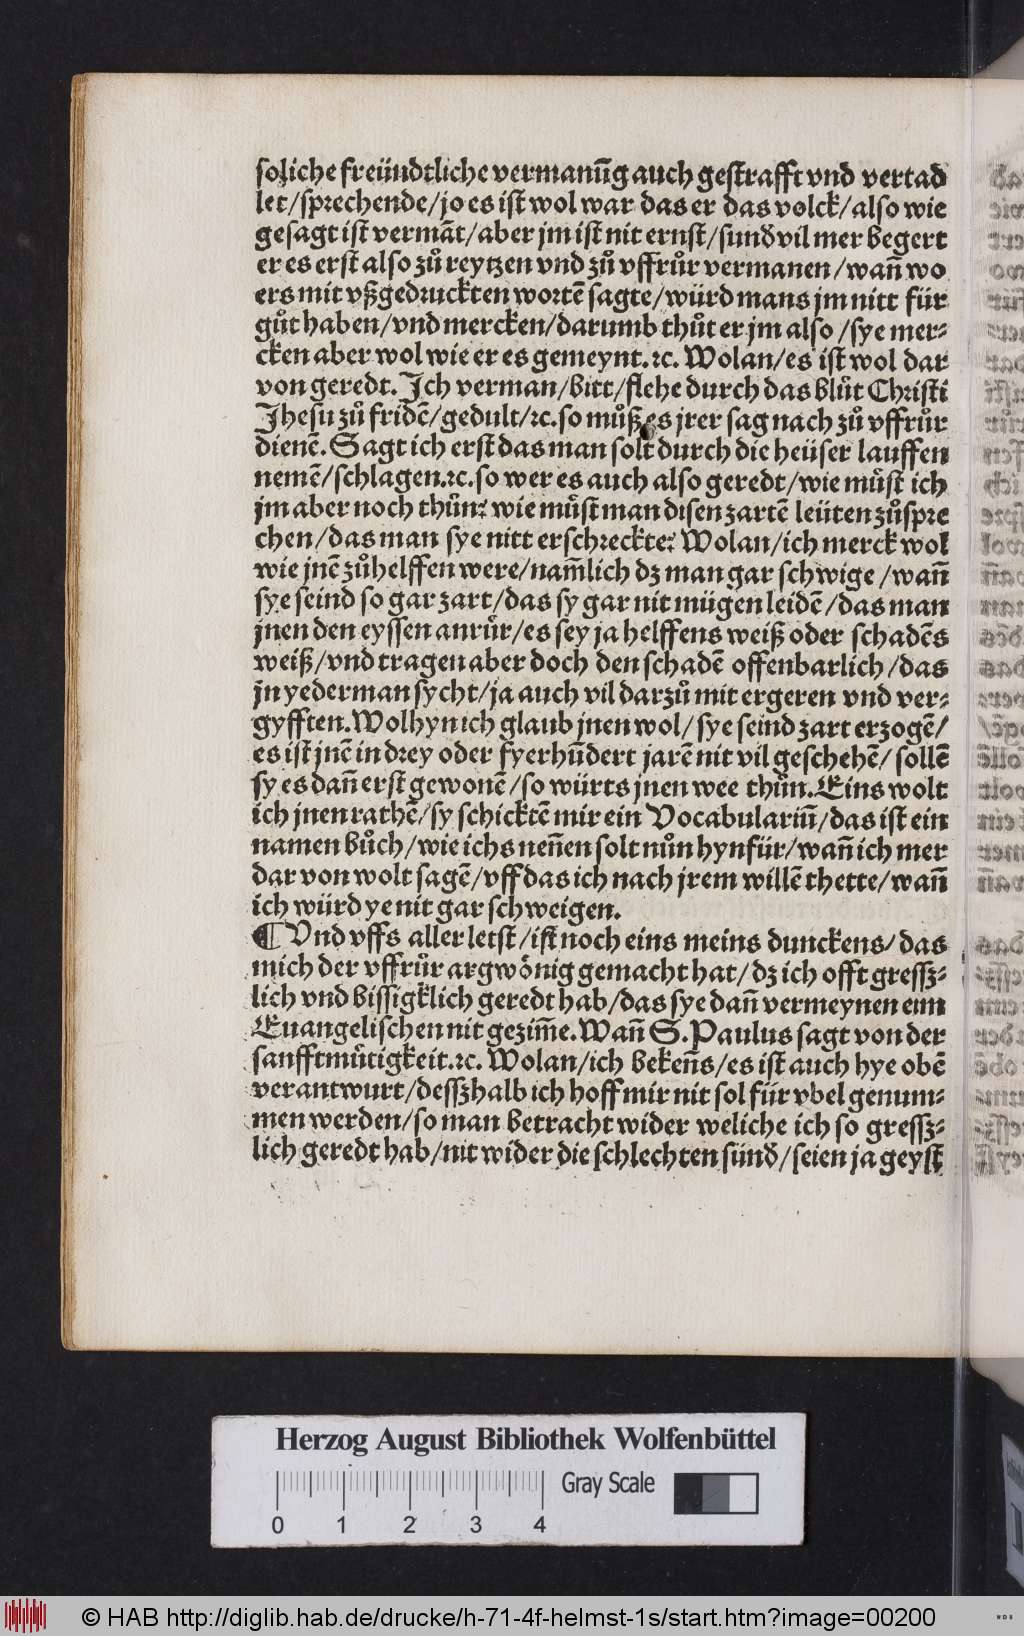 soliche freündtliche vermanūg auch gestrafft vnd vertad
let/sprechende/jo es ist wol war das er das volck/also wie
gesagt ist vermāt/aber jm ist nit ernst/sund̃ vil mer begert
er es erst also zů reytzen vnd zů vffrůr vermanen/wañ wo
ers mit vßgedruckten wortē sagte/würd mans jm nitt für
gůt haben/vnd mercken/darumb thůt er jm also/sye mer⸗
cken aber wol wie er es gemeynt.ꝛc. Wolan/es ist wol dar
von geredt. Ich verman/bitt/flehe durch das blůt Christi
Jhesu zů fridē/gedult/ꝛc.so můß es jrer sag nach zů vffrůr
dienē. Sagt ich erst das man solt durch die heüser lauffen
nemē/schlagen.ꝛc.so wer es auch also geredt/wie mü̊st ich
jm aber noch thůn? wie mü̊st man disen zartē leüten zůspre
chen/das man sye nitt erschreckte? Wolan/ich merck wol
wie jnē zůhelffen were/nam̄lich dz man gar schwige/wañ
sye seind so gar zart/das sy gar nit mügen leidē/das man
jnen den eyssen anrůr/es sey ja helffens weiß oder schadēs
weiß/vnd tragen aber doch den schadē offenbarlich/das
jn yederman sycht/ja auch vil darzů mit ergeren vnd ver⸗
gyfften.Wolhyn ich glaub jnen wol/sye seind zart erzogē/
es ist jnē in drey oder fyerhūdert jarē nit vil geschehē/sollē
sy es dañ erst gewonē/so würts jnen wee thůn.Eins wolt
ich jnen rathē/sy schicktē mir ein Vocabulariū/das ist ein
namen bůch/wie ichs neñen solt nůn hynfür/wañ ich mer
dar von wolt sagē/vff das ich nach jrem willē thette/wañ
ich würd ye nit gar schweigen.
¶ Vnd vffs aller letst/ist noch eins meins dunckens/das
mich der vffrůr argwönig gemacht hat/dz ich offt gressz⸗
lich vnd bissigklich geredt hab/das sye dañ vermeynen eim
Euangelischen nit gezim̄e.Wañ S.Paulus sagt von der
sanfftmü̊tigkeit.ꝛc. Wolan/ich bekeñs/es ist auch hye obē
verantwurt/dessзhalb ich hoff mir nit sol für vbel genum⸗
men werden/so man betracht wider weliche ich so gressz⸗
lich geredt hab/nit wider die schlechten sünd̃/seien ja geyst
Herzog August Bibliothek Wolfenbüttel
Gray Scale
0 1 2 3 4
© HAB http://diglib.hab.de/drucke/h-71-4f-helmst-1s/start.htm?image=00200